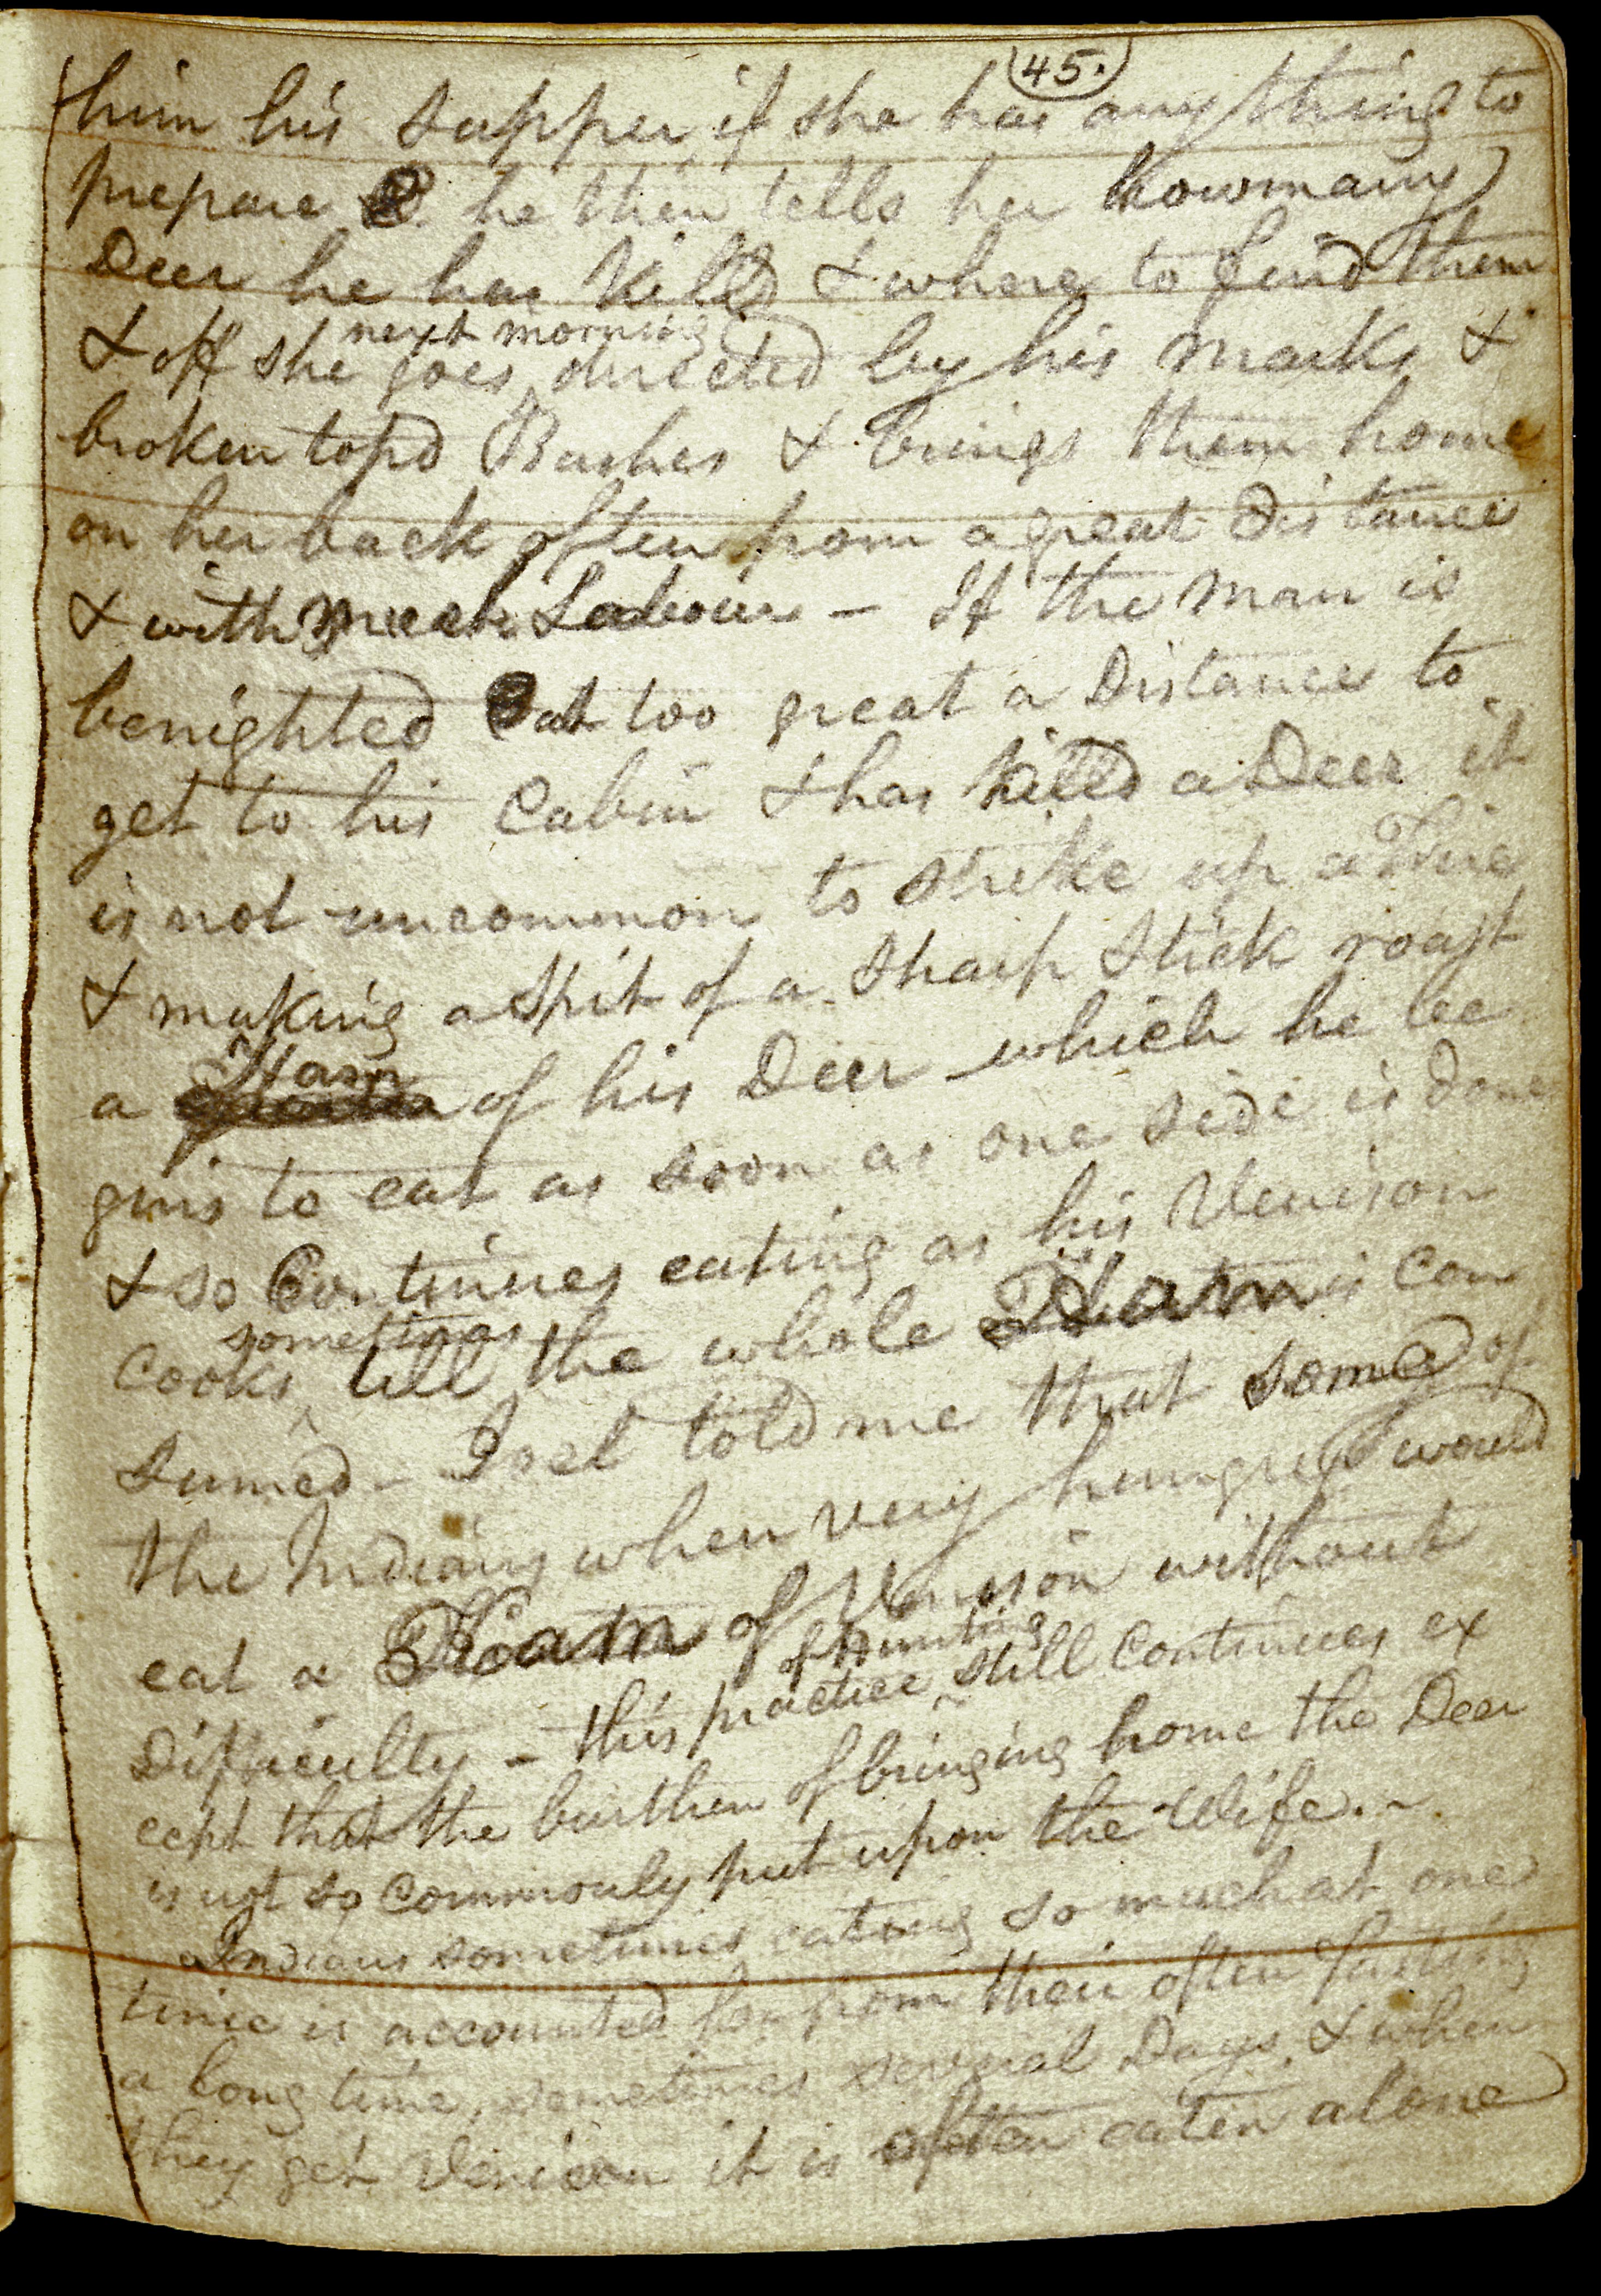 45.
him his supper, if she has any thing to
prepare he then tells her howmany
Deer he has killd & where to find them
next morning
& off she goes, directed by his marks &
broken topd Bushes & brings them home
on her back often from a great Distance
& with much Labour - If the man is
benighted at too great a Distance to
get to his Cabin & has killd a Deer it
is not uncommon to strike up a Fire
& making a Spit of a Sharp Stick roast
Ham
a of his Deer which he be
gins to eat as soon as one side is done
& so Continues eating as his Venison
sometimes
cooks, till the whole Ham is con
sumed - Isel told me that some of
the Indians when very hungrey would
eat a Ham of Venison without
of Hunting
Difficulty - this practice still continues ex
cept that the burthen of bringing home the Deer
is not so commonly put upon the Wife. -
Indians sometimes eating so much at one
time is accounted for from their often fasting
a long time, sometimes several Days, & when
they get Venison it is often eaten alone